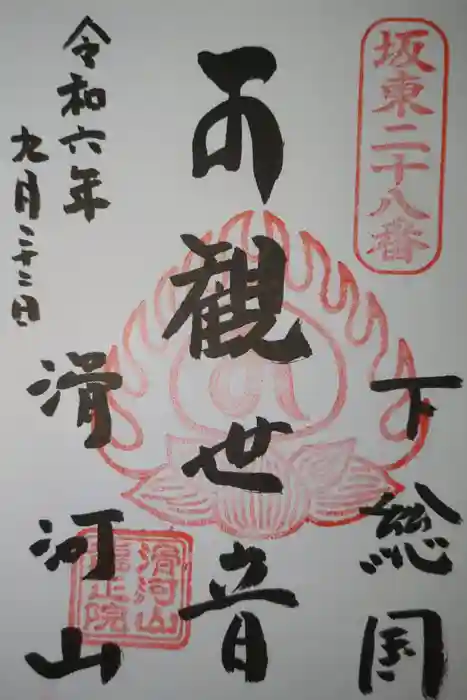 坂東二十八番
下総国
聖観世音
滑河山
令和六年
九月二十二日
滑河山
龍正院